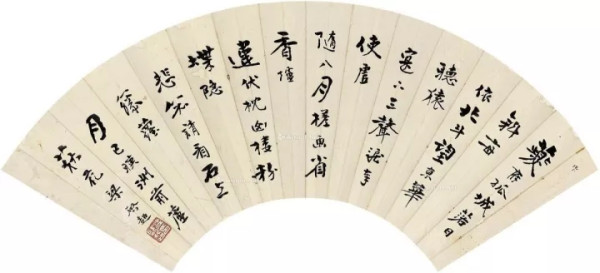 夔府孤城落日
斜每
依北斗望京華
聽猿
寔下三聲淚奉
使虛
隨八月槎画省
香爐
違伏枕山樓粉
堞隱
悲笳請看石上
藤蘿
月已映洲前蘆
荻花 梁啟超